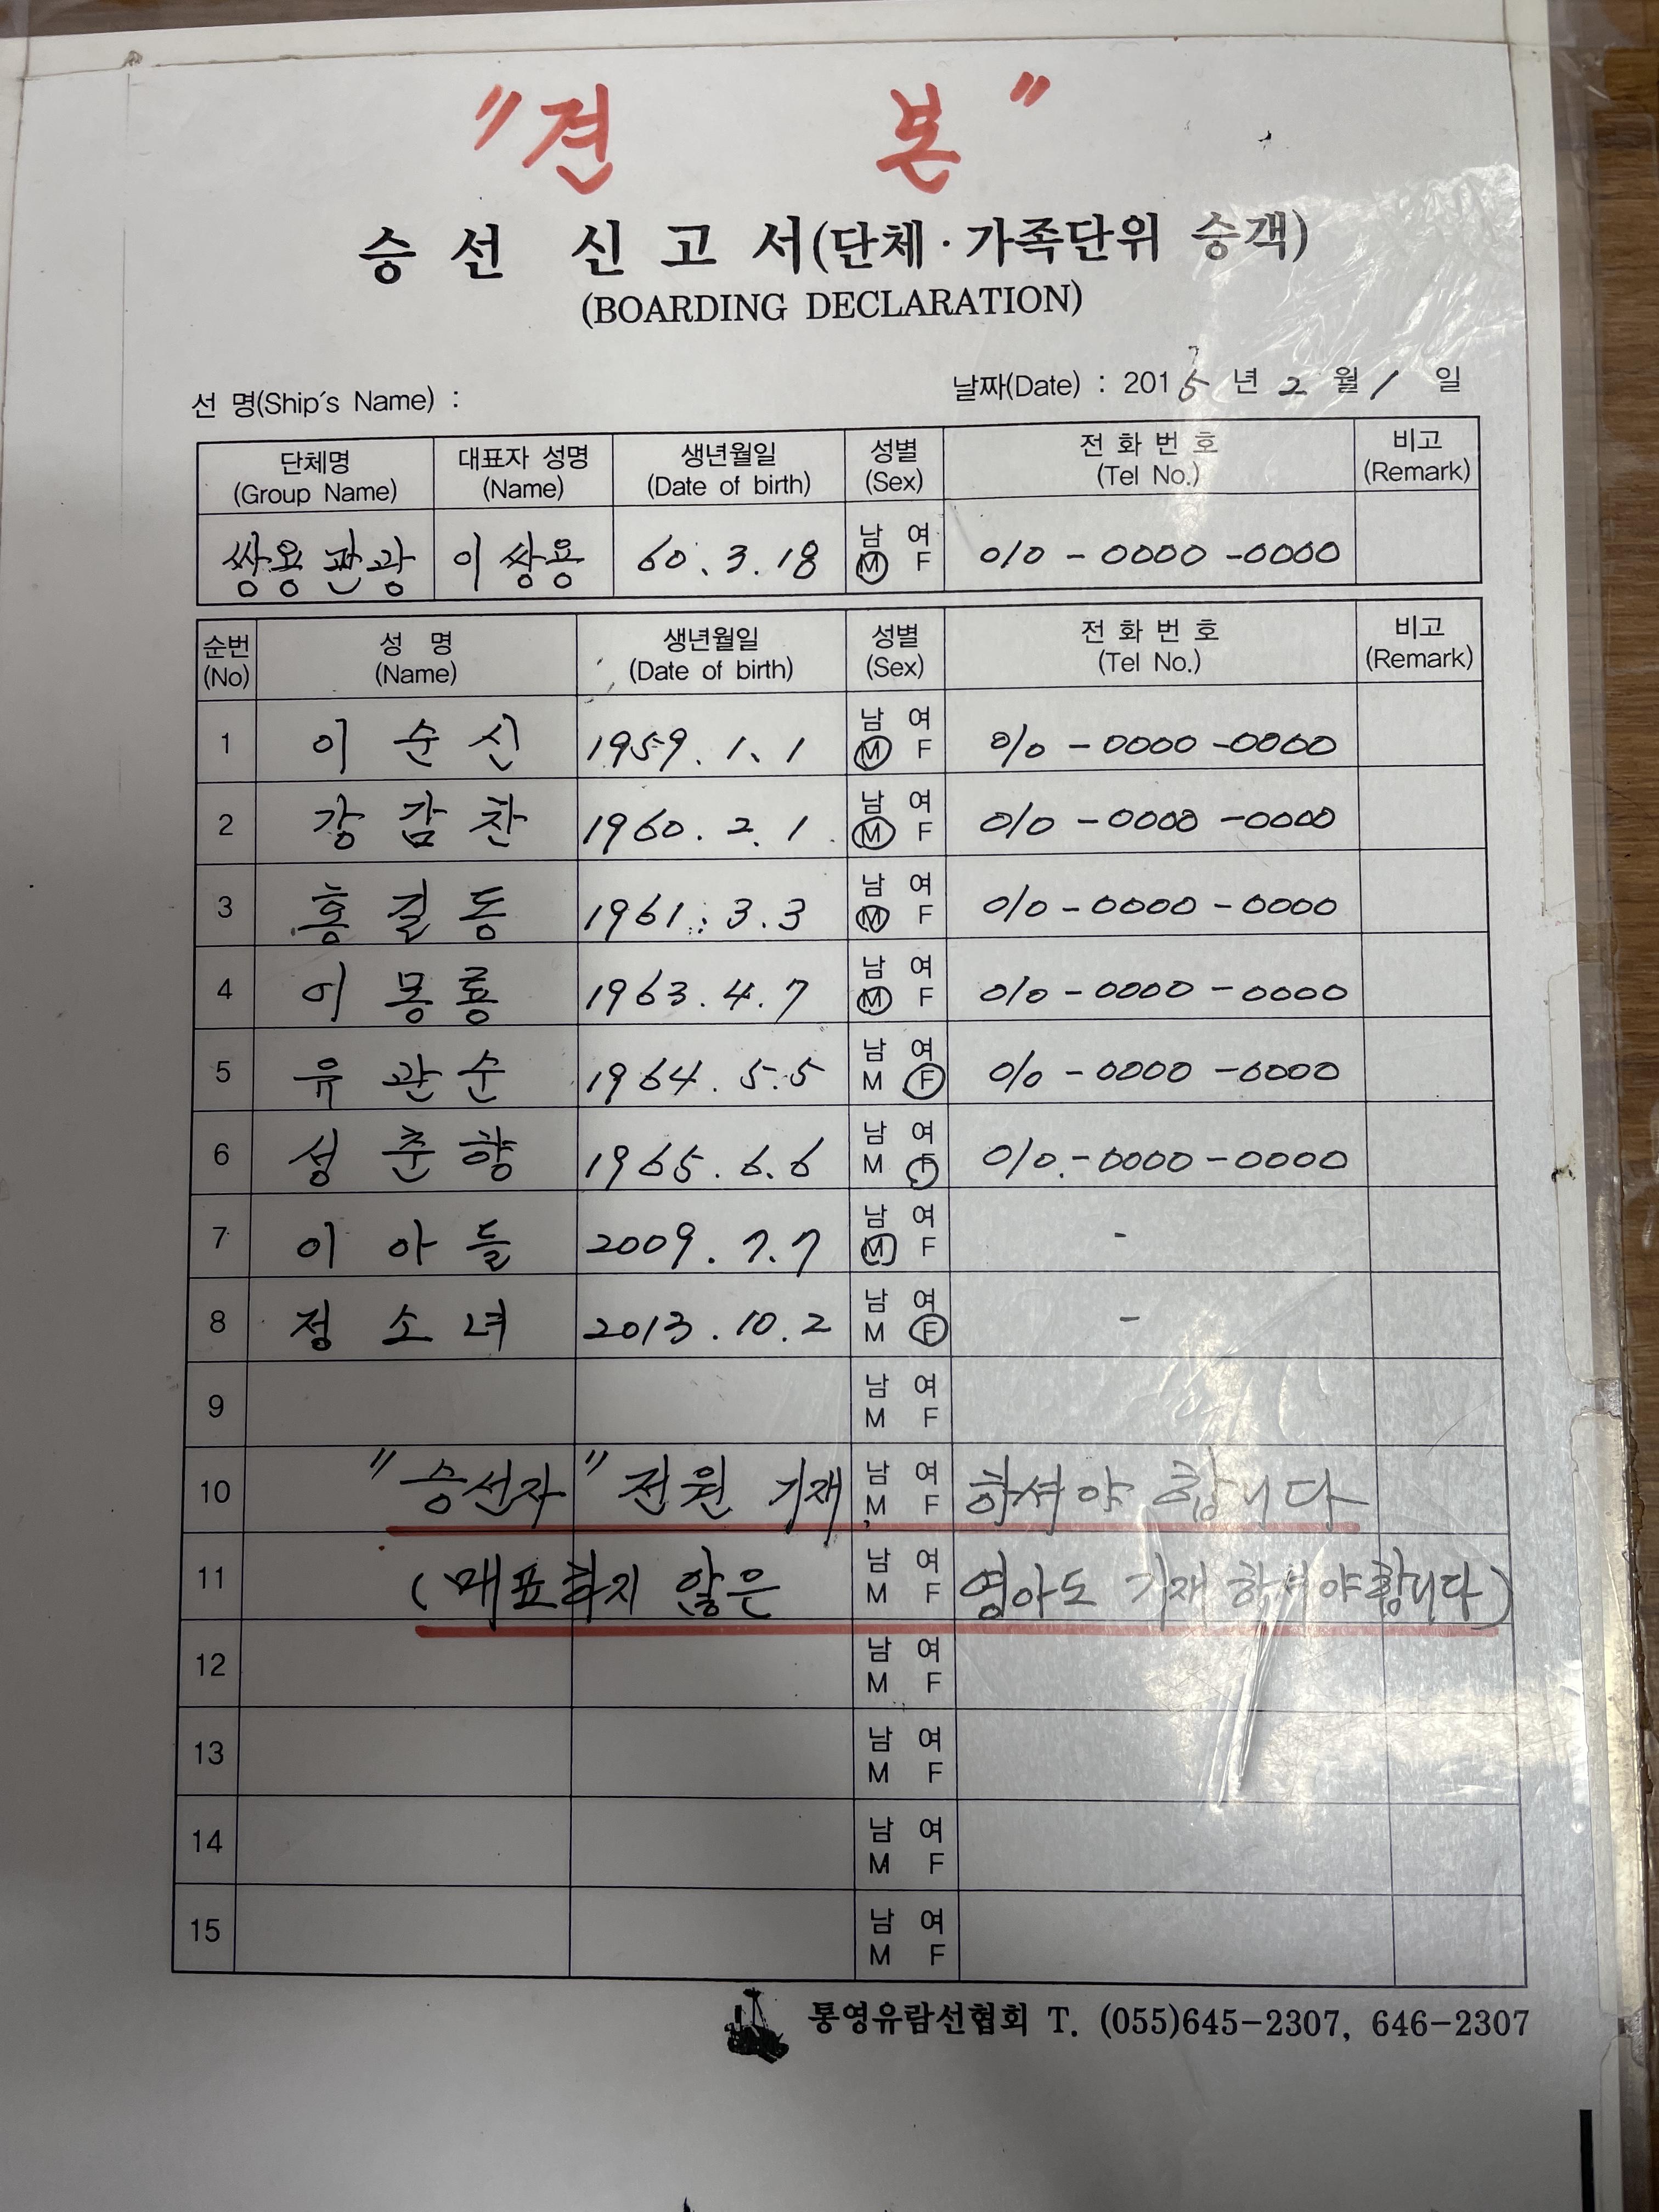 "견 본"
승 선 신 고 서(단체·가족단위 승객)
(BOARDING DECLARATION)
선 명(Ship's Name) :
날짜(Date) : 2015 년 2 월 1 일
7
단체명 대표자 성명 생년월일 성별 전 화 번 호 비고
(Group Name) (Name) (Date of birth) (Sex) (Tel No.) (Remark)
쌍용관광 이쌍용 60. 3. 18 남 여 010-0000-0000
M F
순번 성 명 생년월일 성별 전 화 번 호 비고
(No) (Name) (Date of birth) (Sex) (Tel No.) (Remark)
1 이 순 신 1959. 1. 1 남 여 010-0000-0000
M F
2 강 감 찬 1960. 2. 1 남 여 010-0000-0000
M F
3 홍 길 동 1961. 3. 3 남 여 010-0000-0000
M F
4 이 몽 룡 1963. 4. 7 남 여 010-0000-0000
M F
5 유 관 순 1964. 5. 5 남 여 010-0000-0000
M F
6 성 춘 향 1965. 6. 6 남 여 010-0000-0000
M F
7 이 아 들 2009. 7. 7 남 여 -
M F
8 정 소 녀 2013. 10. 2 남 여 -
M F
9 남 여
M F
10 "승선자" 전원 기재 남 여 하셔야 합니다
M F
11 (매표하지 않은 남 여 영아도 기재 하셔야합니다)
M F
12 남 여
M F
13 남 여
M F
14 남 여
M F
15 남 여
M F
통영유람선협회 T. (055)645-2307, 646-2307